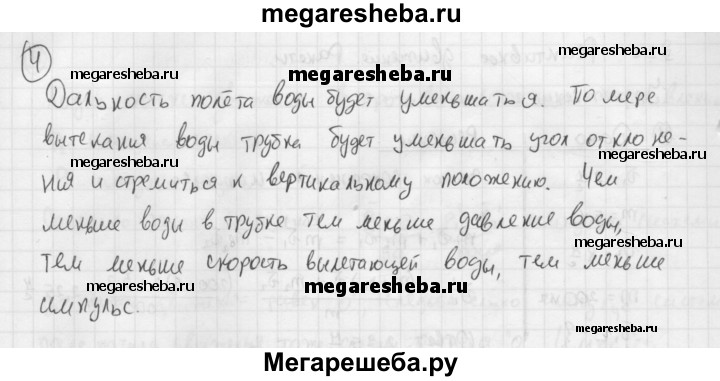 megaresheba.ru
④
megaresheba.ru megaresheba.ru
Дальность полёта воды будет уменьшаться. По мере
вытекания воды трубка будет уменьшать угол отклоне-
megaresheba.ru megaresheba.ru megaresheba.ru
ния и стремиться к вертикальному положению. Чем
меньше воды в трубке тем меньше давление воды,
megaresheba.ru
тем меньше скорость вылетающей воды, тем меньше
megaresheba.ru megaresheba.ru
импульс.
megaresheba.ru
Мегарешеба.ру